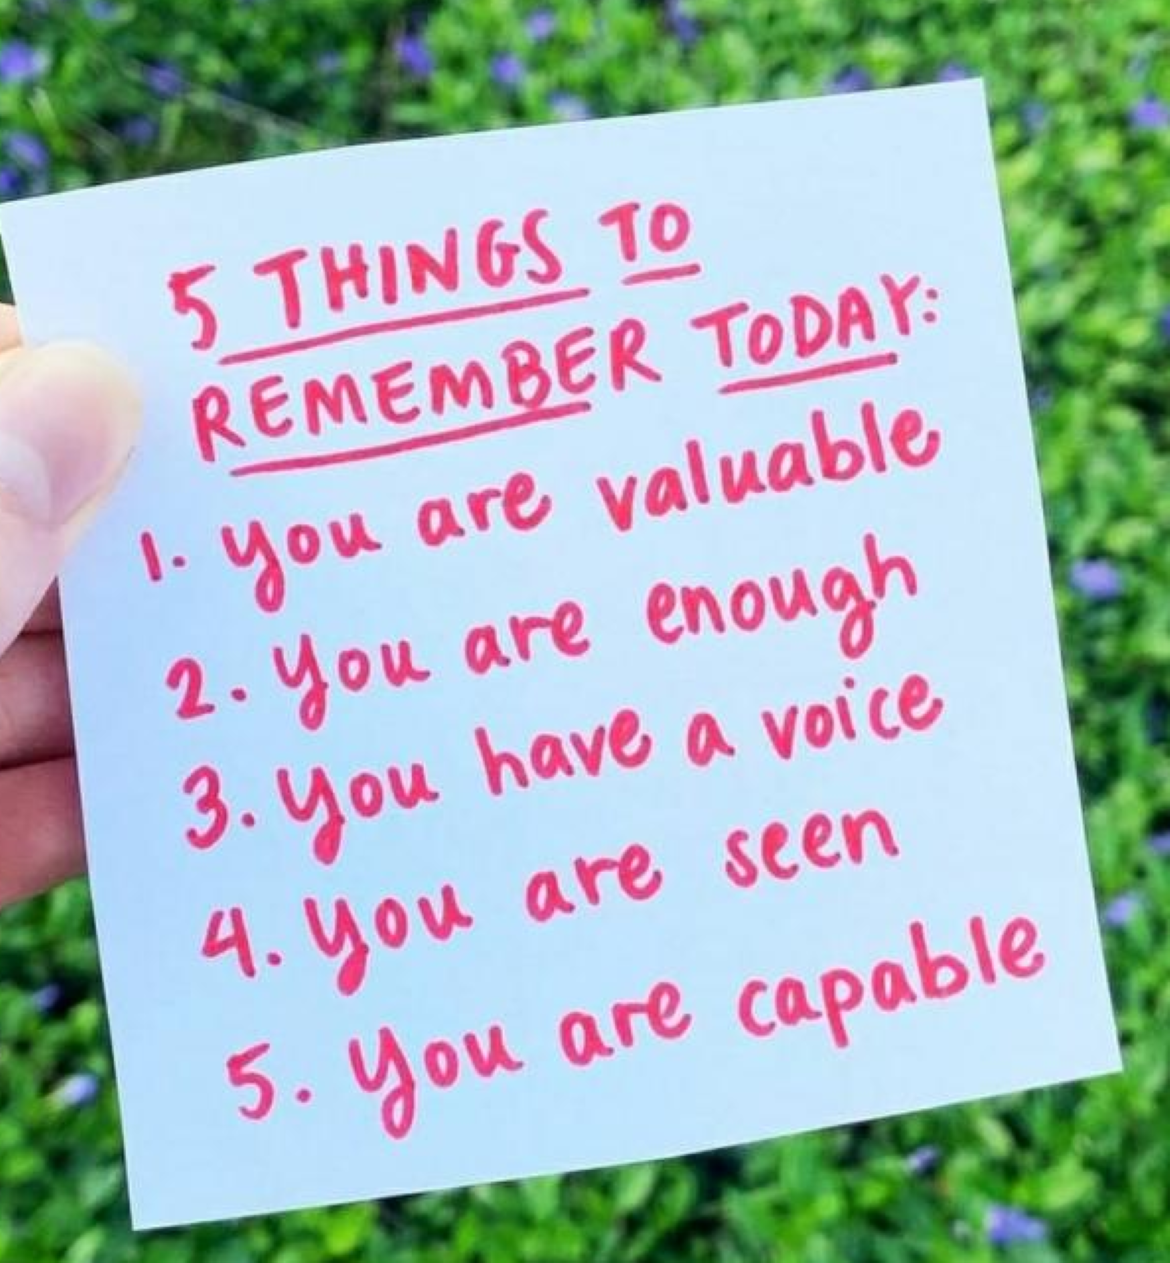 5 THINGS TO
REMEMBER TODAY:
1. You are valuable
2. You are enough
3. You have a voice
4. You are seen
5. You are capable